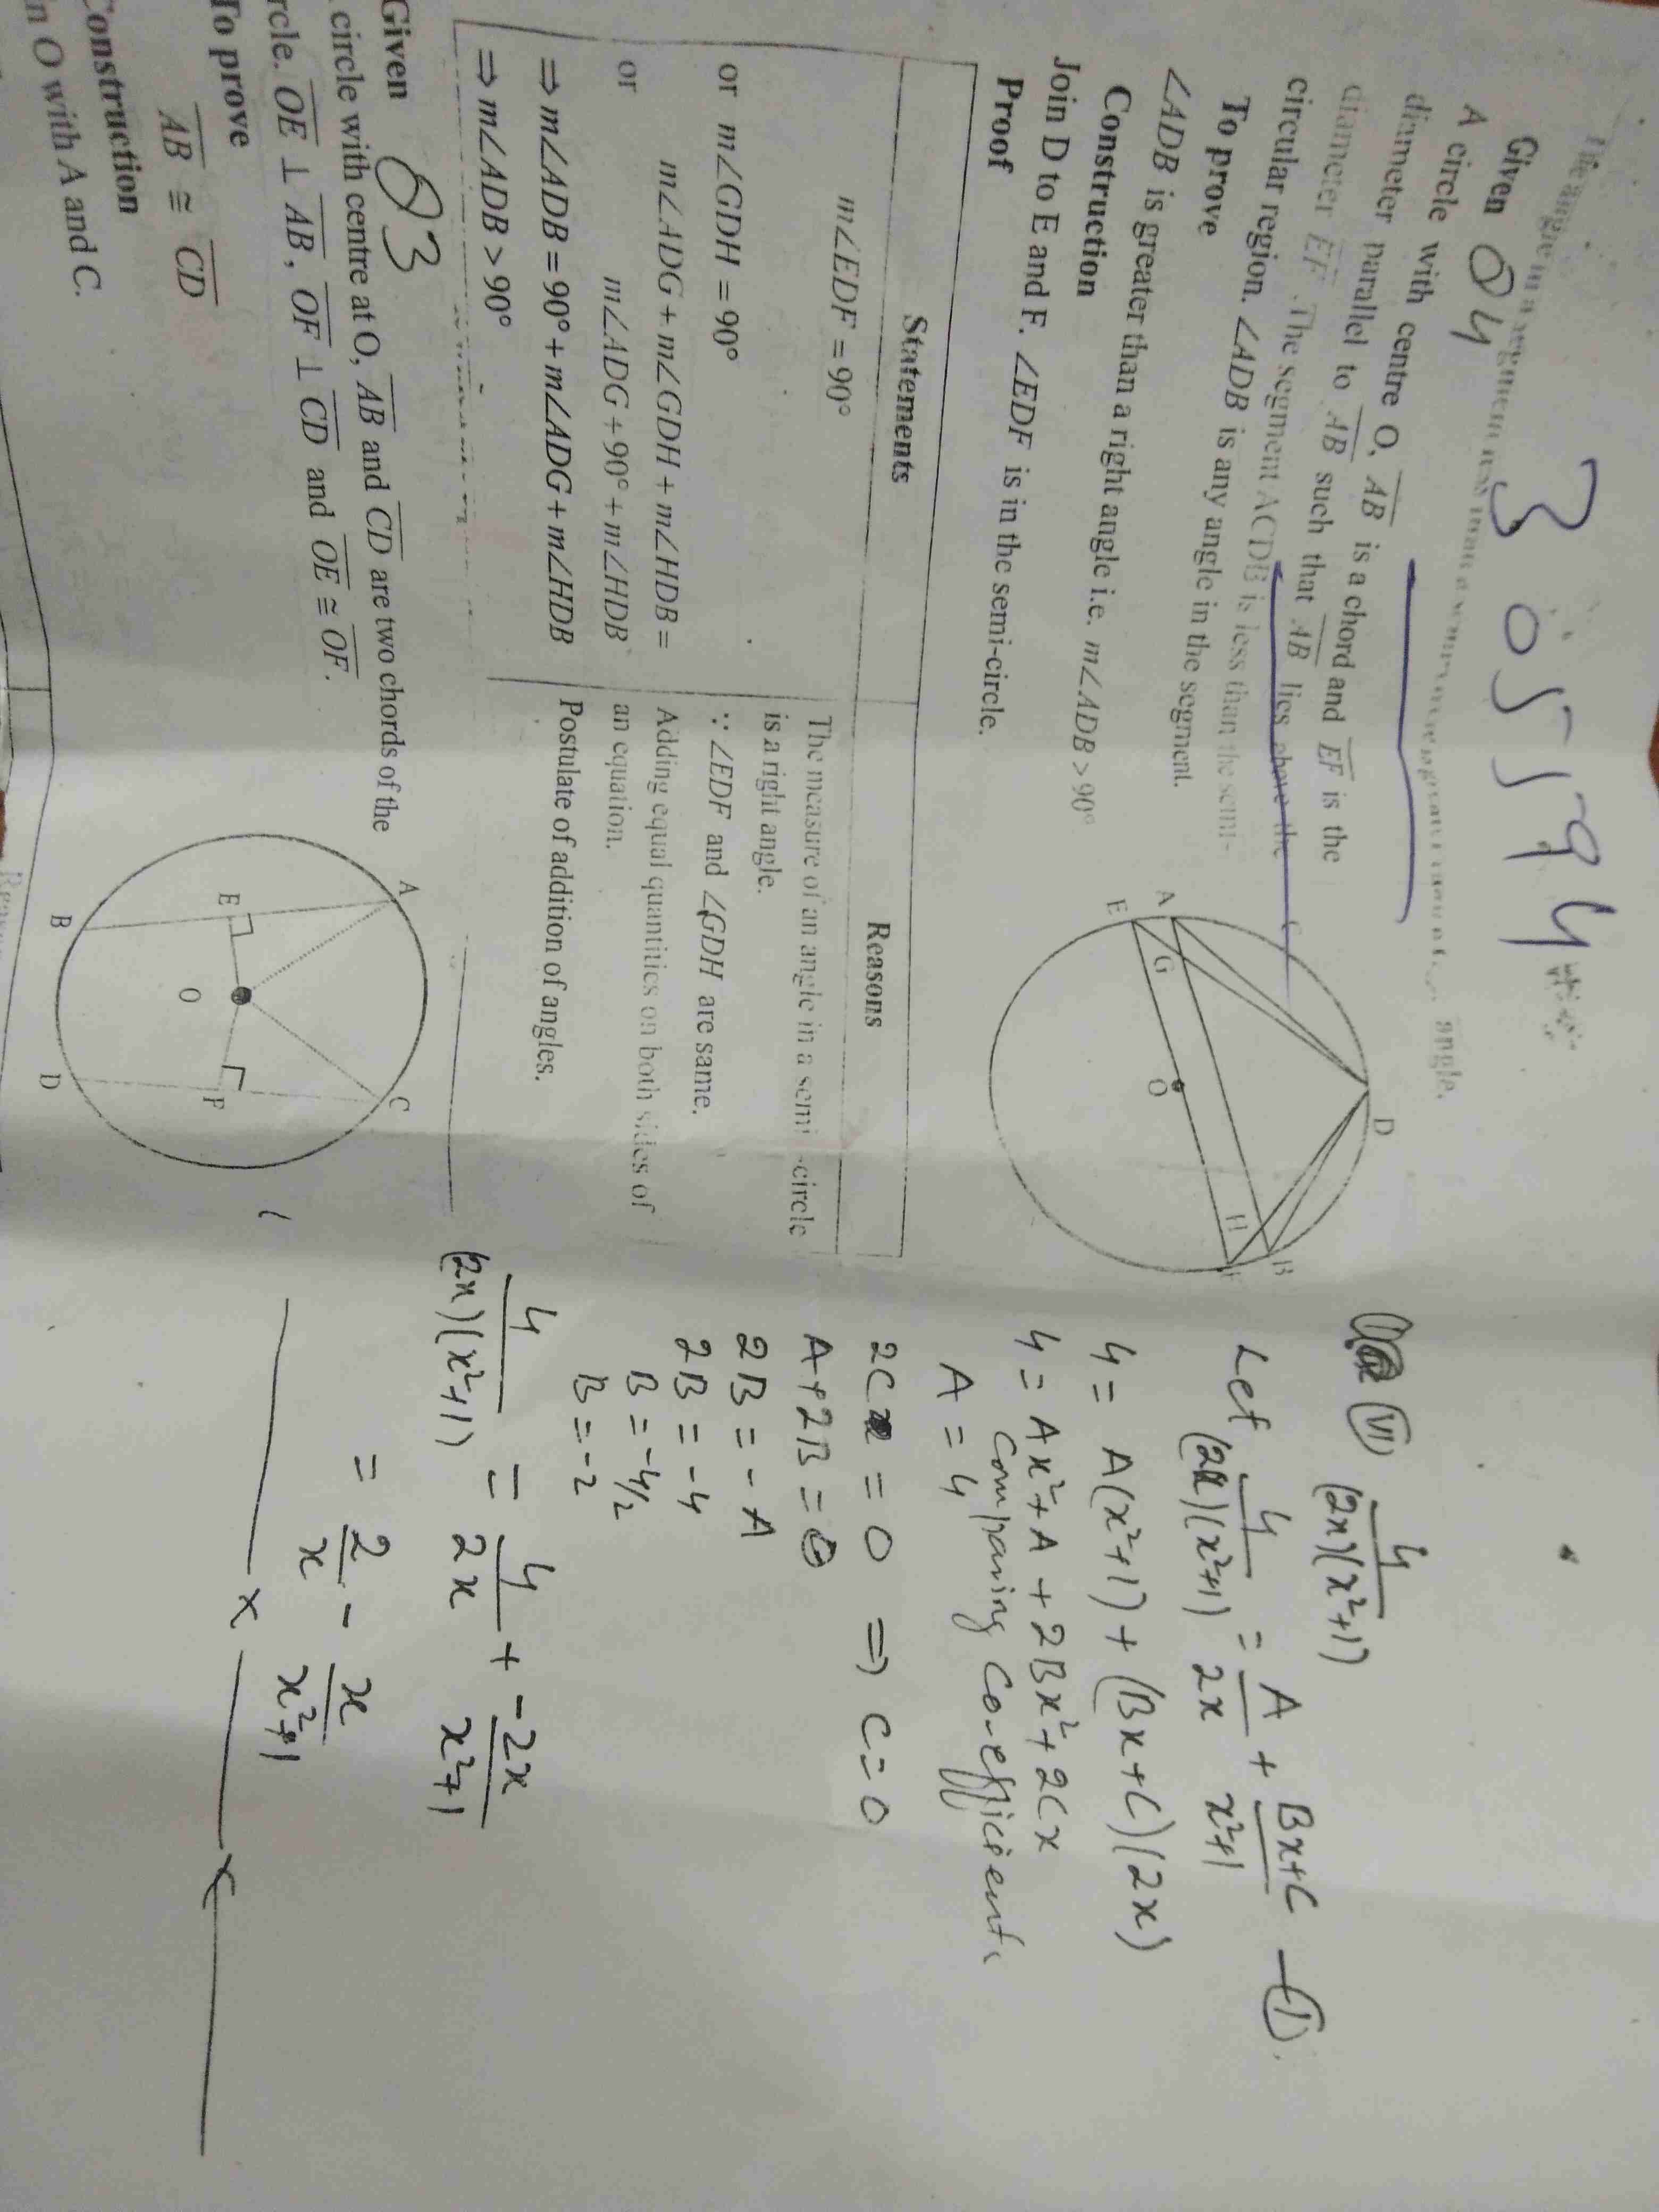 3 0 5 5 9 4
The angle in a segment
angle.
Given Q4
A circle with centre O, AB is a chord and EF is the
diameter parallel to AB such that AB lies above the
diameter EF. The segment ACDB is less than the semi-
circular region. ∠ADB is any angle in the segment.
To prove
∠ADB is greater than a right angle i.e. m∠ADB > 90°
Construction
Join D to E and F. ∠EDF is in the semi-circle.
Proof
Statements
Reasons
m∠EDF = 90°
The measure of an angle in a semi-circle
is a right angle.
or m∠GDH = 90°
∵ ∠EDF and ∠GDH are same.
m∠ADG + m∠GDH + m∠HDB =
Adding equal quantities on both sides of
or m∠ADG + 90° + m∠HDB
an equation.
⇒ m∠ADB = 90° + m∠ADG + m∠HDB
Postulate of addition of angles.
⇒ m∠ADB > 90°
A
E
G
C
D
O
H
B
F
Given Q3
circle with centre at O, AB and CD are two chords of the
rcle. OE ⊥ AB, OF ⊥ CD and OE ≅ OF.
To prove
AB ≅ CD
Construction
n O with A and C.
A
C
E
F
O
B
D
(VI) 4/(2x)(x²+1)
Let 4/(2x)(x²+1) = A/2x + Bx+C/x²+1 — (I)
4 = A(x²+1) + (Bx+C)(2x)
4 = Ax²+A + 2Bx²+2Cx
Comparing Co-efficients
A = 4
2C = 0 ⇒ C=0
A+2B = 0
2B = -A
2B = -4
B = -4/2
B = -2
4/(2x)(x²+1) = 4/2x + -2x/x²+1
= 2/x - x/x²+1